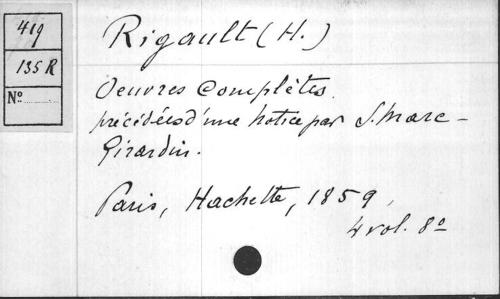 419
135 R
N°
Rigault (H.)
Oeuvres complètes
précédées d'une notice par S. Marc-
Girardin.
Paris, Hachette, 1859,
4 vol. 8°